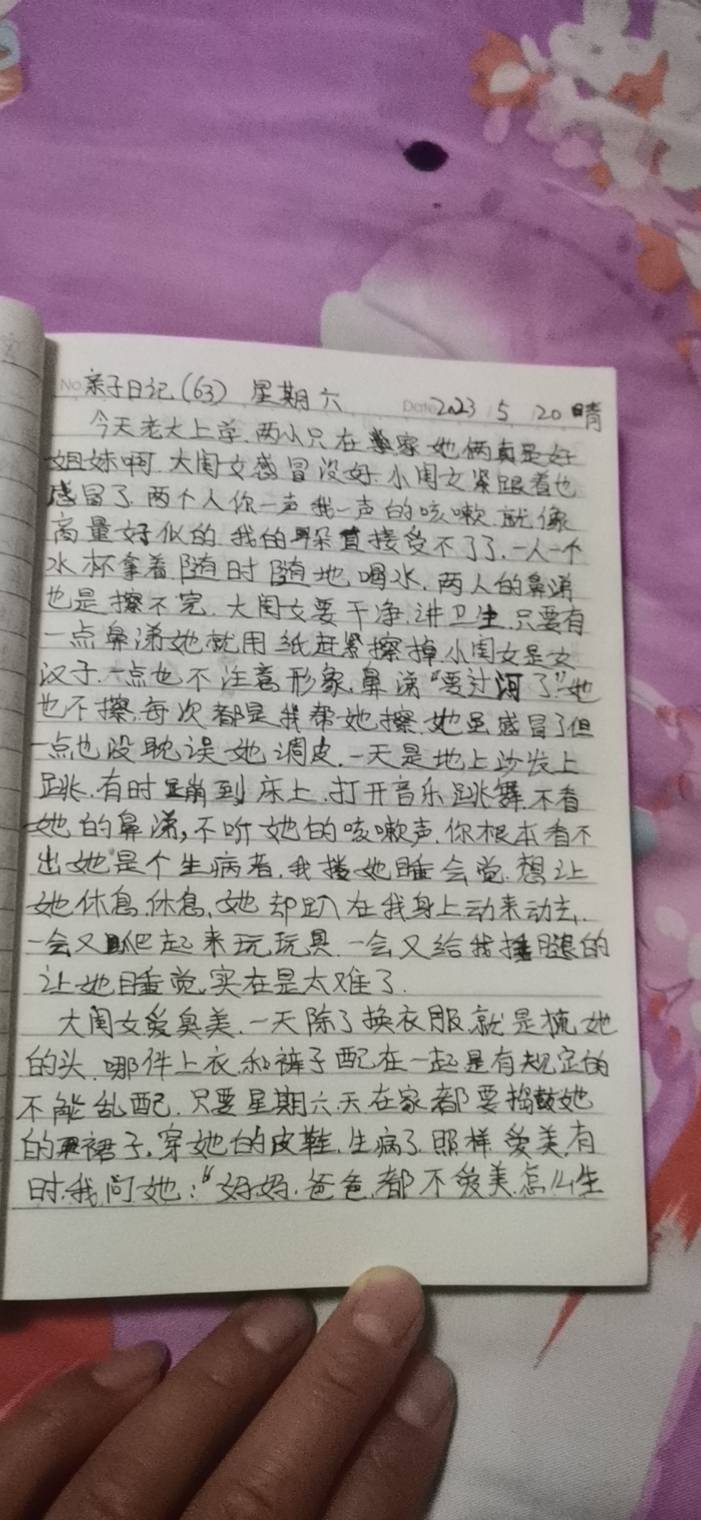 No 亲子日记(63) 星期六 Date 2023 5 20 晴
今天老大上学.两小只在家她俩真是好
姐妹啊.大闺女感冒没好.小闺女紧跟着也
感冒了.两个人你一声我一声的咳嗽.就像
商量好似的.我的耳朵直接受不了了.一人一个
水杯拿着随时随地喝水.两人的鼻涕
也是擦不完.大闺女要干净.讲卫生.只要有
一点鼻涕她就用纸赶紧擦掉.小闺女是女
汉子.一点也不注意形象.鼻涕“要过河了”.她
也不擦.每次都是我帮她擦.她虽感冒了但
一点也没耽误她调皮.一天是地上沙发上
跳.有时蹦到床上.打开音乐跳舞.不看
她的鼻涕,不听她的咳嗽声.你根本看不
出她是个生病者.我搂她睡会觉.想让
她休息休息.她却趴在我身上动来动去.
一会又爬起来玩玩具.一会又给我捶腿的
让她睡觉实在是太难了.
大闺女爱臭美.一天除了换衣服就是梳她
的头.哪件上衣和裤子配在一起是有规定的
不能乱配.只要星期六.天在家都要捣鼓她
的裙子.穿她的皮鞋.生病了照样爱美.有
时.我问她:“妈妈.爸爸.都不爱美.怎么生